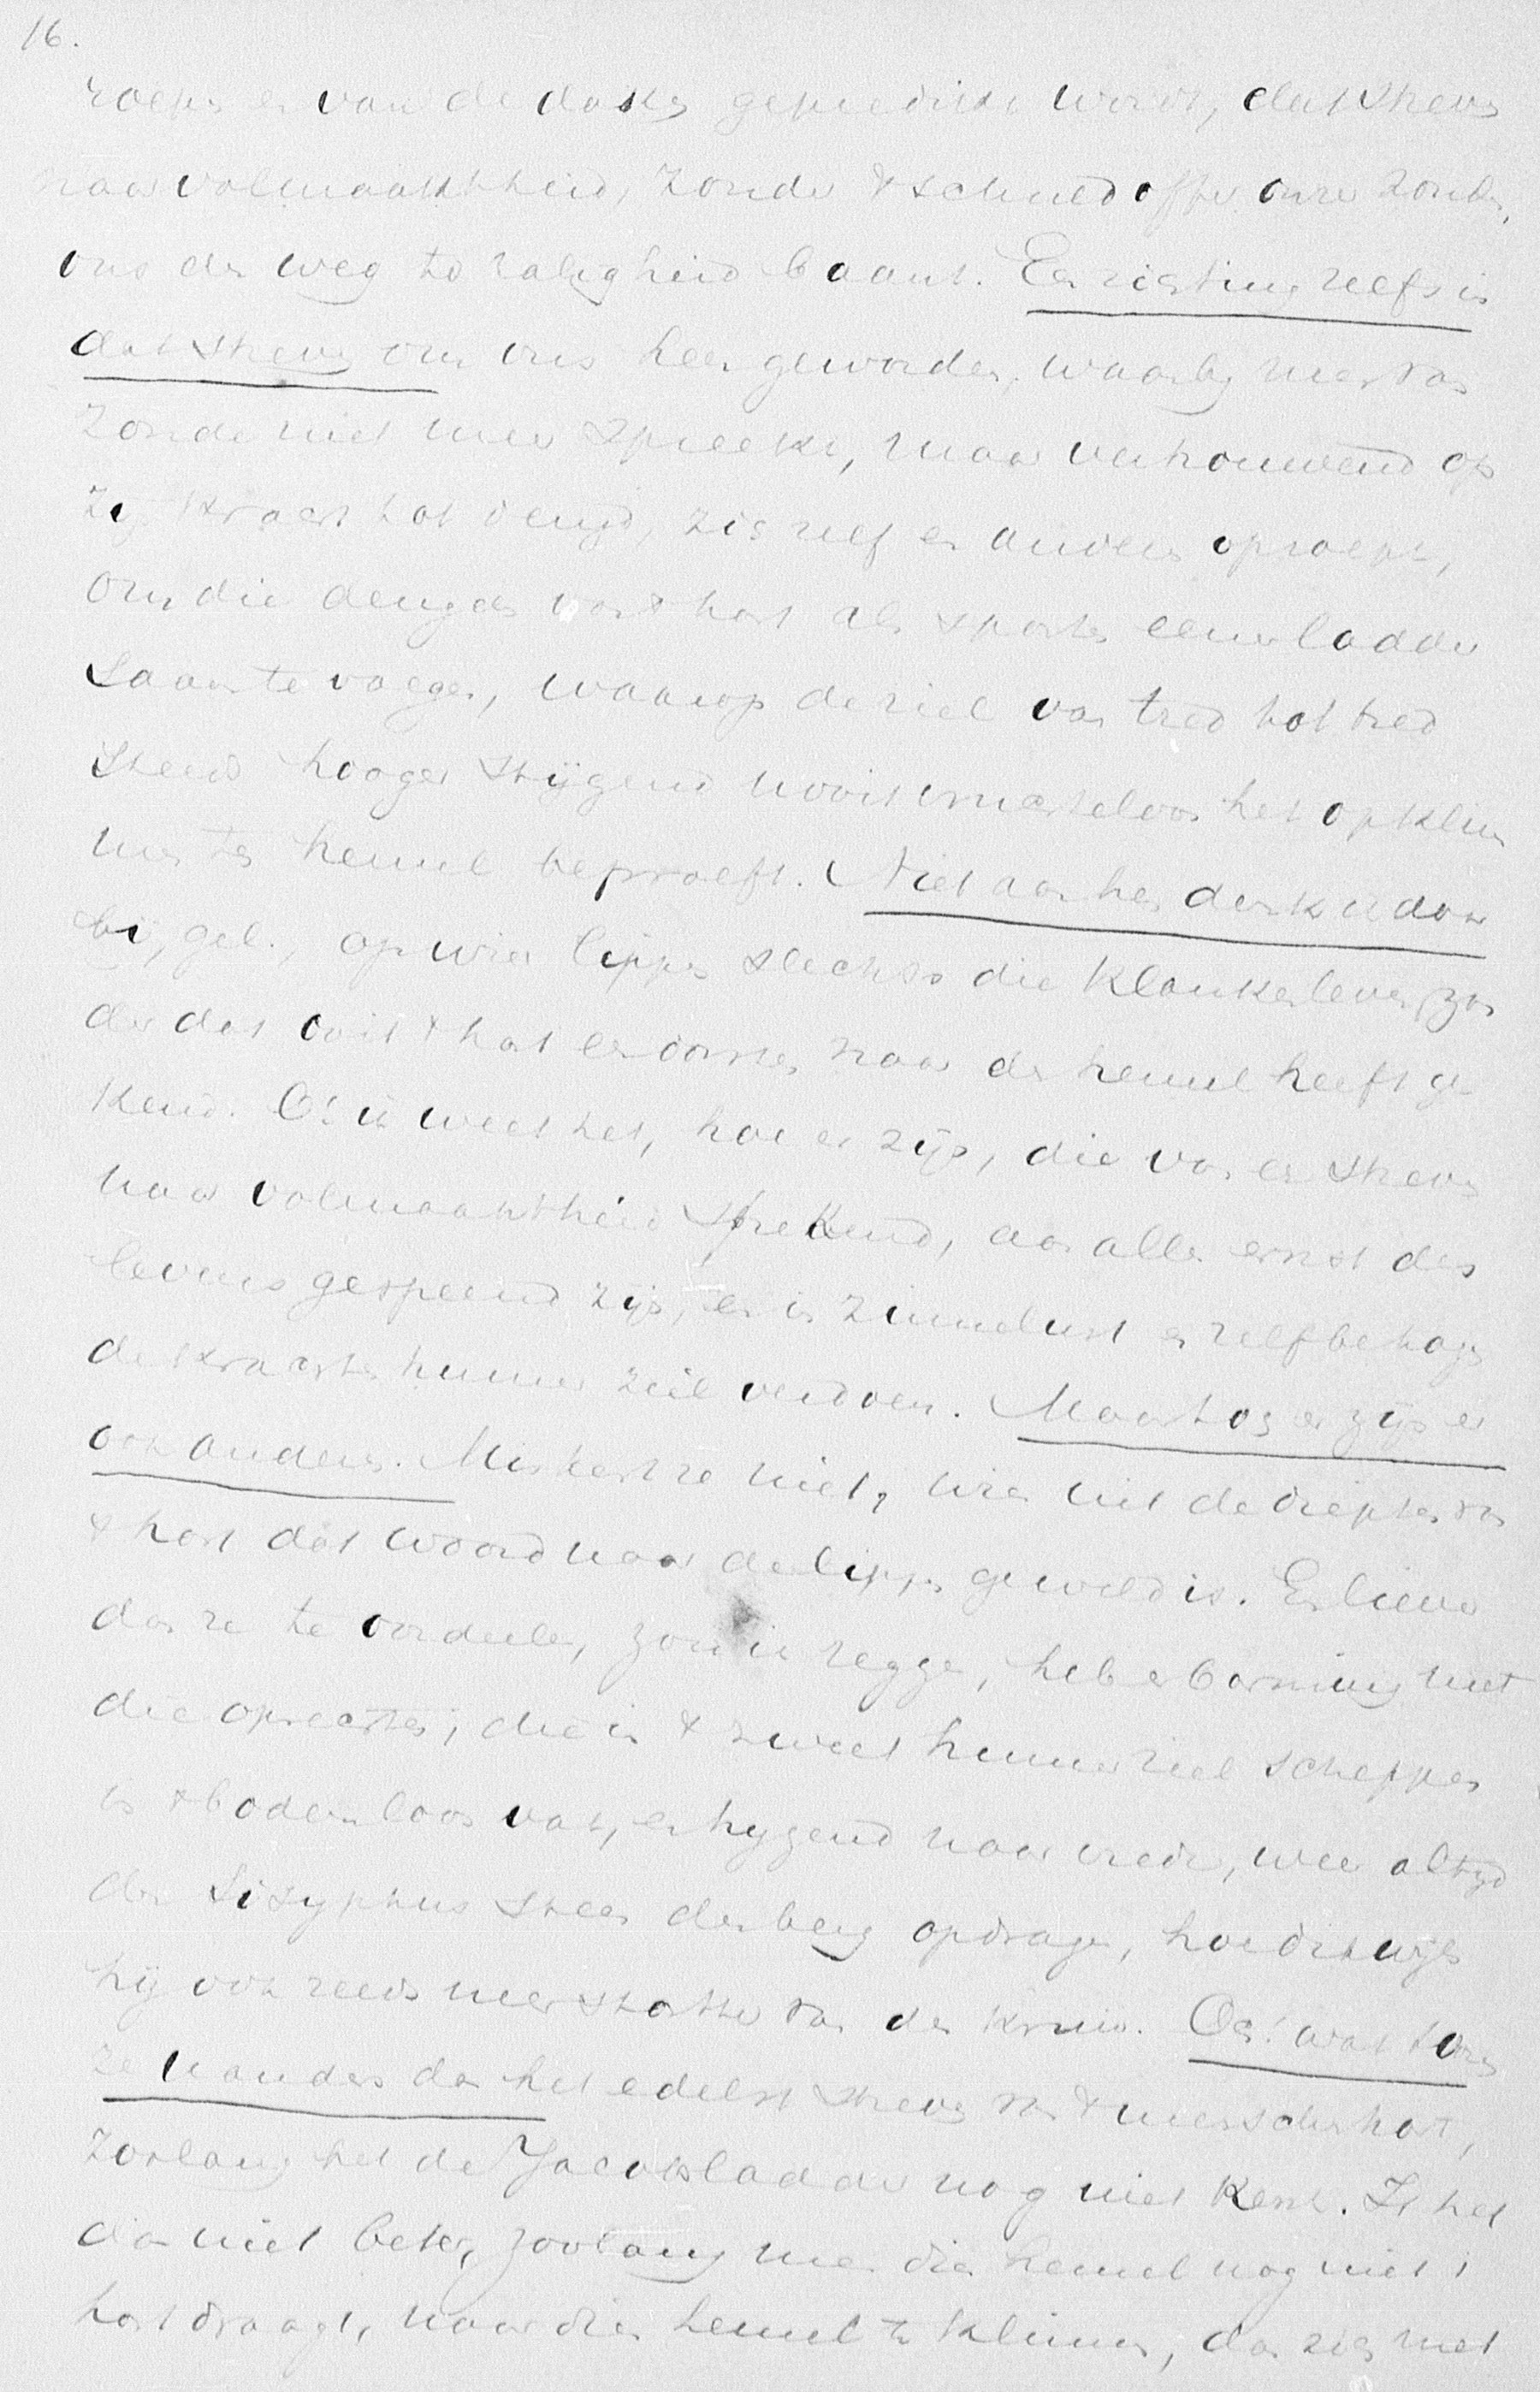 16.
roepen en van de daken gepredikt wordt, dat streven
naar volmaaktheid, zonder 't schuldoffer onzer zonden,
ons den weg tot zaligheid baant. Een rigting zelfs is
dat streven om ons heen geworden, waarbij men van
zonde niet meer spreekt, maar vertrouwend op
zijn kracht tot deugd, zich zelf en anderen oproept,
om die deugden van 't hart als sporten eener ladder
saam te voegen, waarop de ziel van tred tot tred
steeds hooger stijgend nooit vruchteloos het opklim
men ten hemel beproeft. Niet aan hen denk ik daar
bij, gel., op wier lippen slechts die klanken leven, zon
der dat ooit 't hart een dorsten naar den hemel heeft ge
kend. O! ik weet het, hoe er zijn, die van een streven
naar volmaaktheid sprekend, aan allen ernst des
levens gespeend zijn, en in zinnelust en zelfbehagen
de krachten hunner ziel verdoen. Maar toch er zijn er
ook anderen. Miskent ze niet, wien uit de diepten van
't hart dat woord naar de lippen geweld is. En liever
dan ze te oordeelen, zou ik zeggen, heb erbarming met
die oprechten, die in 't zweet hunner ziel scheppen
in 't bodemloos vat, en hygend naar vrede, weer altijd
den Sisyphus steen den berg opdragen, hoe dikwijls
hij ook reeds neerstortte van den kruin. Och! wat toch
is het anders dan het edelst streven van 't menschenhart,
zoolang het de Jacobsladder nog niet kent. Is het
dan niet beter, zoolang men dien hemel nog niet in 't
hart draagt, naar dien hemel te klimmen, dan zich met